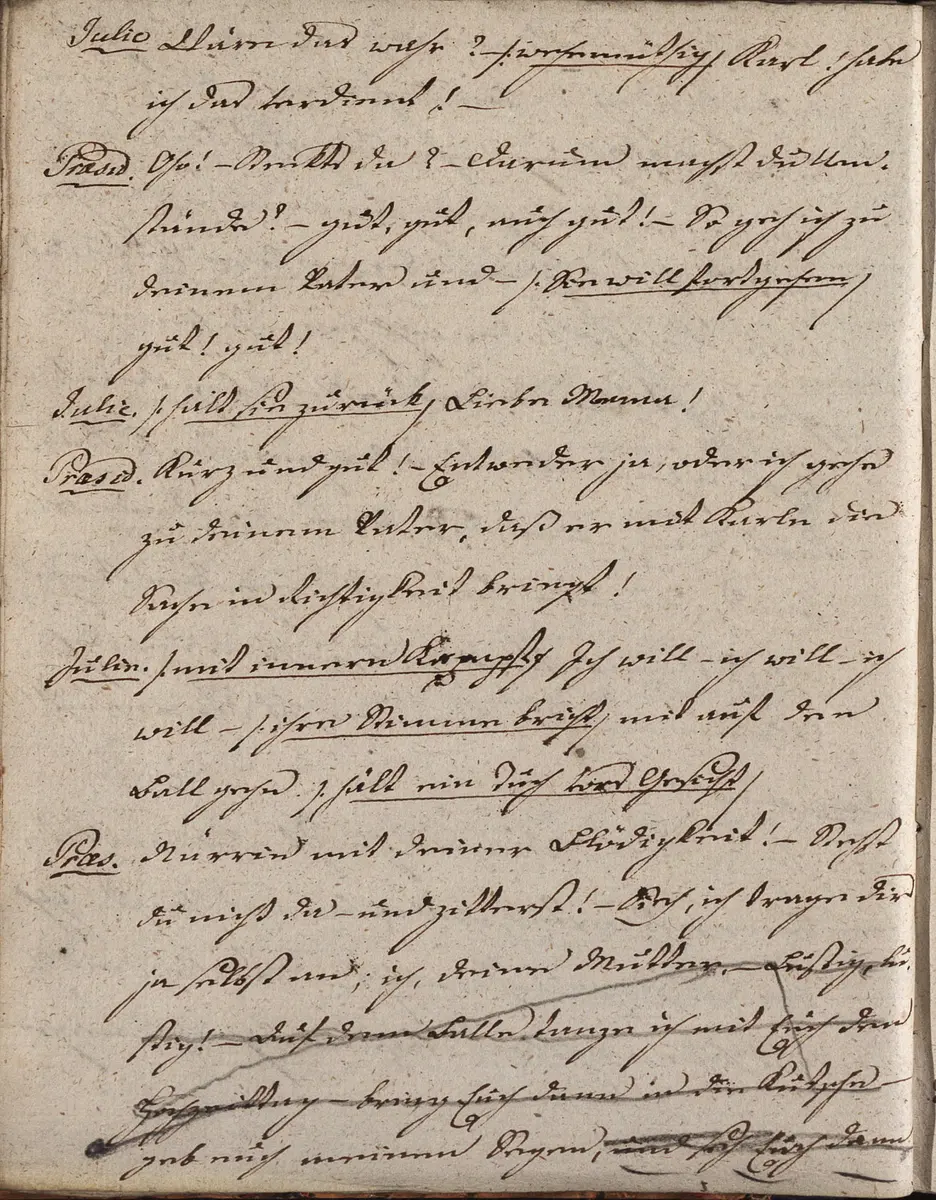 Julie Wäre das wahr? – /: wehemüthig / Karl! habe
ich das verdient! –
Præsid. Oho! – Steckts da? – Darum machst du Um-
stände? – gut, gut, auch gut! – So geh ich zu
deinem Vater und – /: Sie will fortgehen /
gut! gut!
Julie. /: hält sie zurück / Liebe Mama!
Præsid. Kurz und gut! – Entweder ja, oder ich gehe
zu deinem Vater, daß er mit Karln die
Sache in Richtigkeit bringt!
Julie. /: mit innern Kampf / Ich will – ich will – ich
will – /: ihre Stimme bricht / mit auf den
Ball gehn /: hält ein Tuch vors Gesicht /
Præs. Närrin mit deiner Blödigkeit! – Stehst
du nicht da – und zitterst! – Sieh, ich trage dirs
ja selbst an; ich, deine Mutter. – Lustig, lu-
stig! – Auf dem Balle tanze ich mit Euch den
Hochzeittag – bring Euch dann in die Kutsche –
geb euch meinen Segen, und seh Euch dann